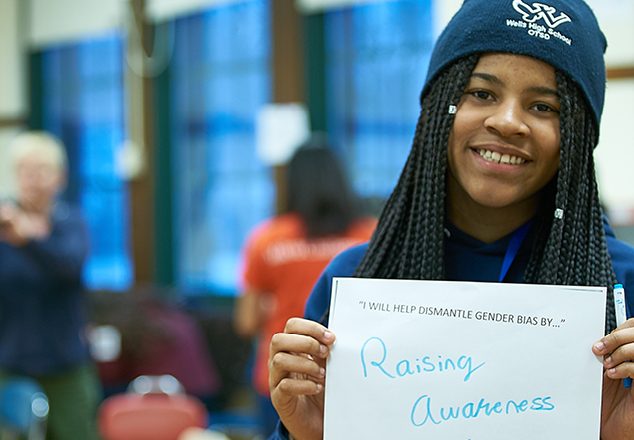 Wells High School
OTSD
"I WILL HELP DISMANTLE GENDER BIAS BY..."
Raising
Awareness